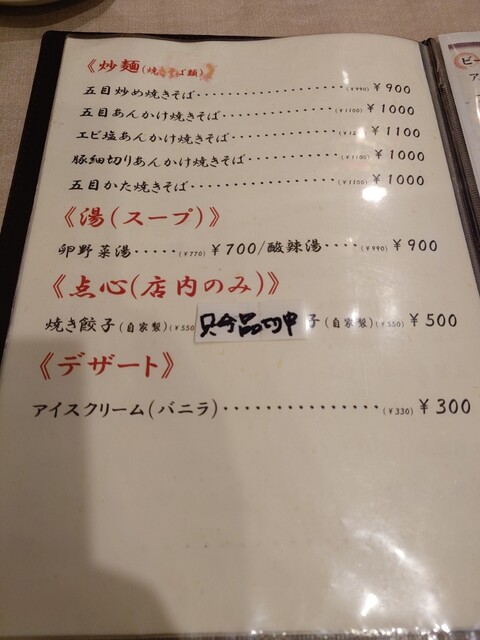 《炒麺(焼きそば類)》
五目炒め焼きそば‥‥‥‥‥‥‥‥(¥990)¥900
五目あんかけ焼きそば‥‥‥‥‥‥(¥1100)¥1000
エビ塩あんかけ焼きそば‥‥‥‥‥¥1100
豚細切りあんかけ焼きそば‥‥‥‥(¥1100)¥1000
五目かた焼きそば‥‥‥‥‥‥‥‥(¥1100)¥1000
《湯(スープ)》
卵野菜湯‥‥(¥770)¥700/酸辣湯‥‥(¥990)¥900
《点心(店内のみ)》
焼き餃子(自家製)(¥550 只今品切中 子(自家製)(¥550)¥500
《デザート》
アイスクリーム(バニラ)‥‥‥‥‥‥‥‥(¥330)¥300
ビー
ア